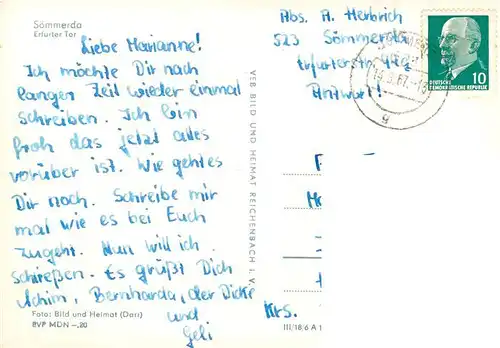 Sömmerda
Erfurter Tor
Liebe Marianne!
Ich möchte Dir nach
langer Zeit wieder einmal
schreiben. Ich bin
froh das jetzt alles
vorüber ist. Wie geht es
Dir noch. Schreibe mir
mal wie es bei Euch
zugeht. Nun will ich
schließen. Es grüßt Dich
Achim, Bernharda, der Dicke
und
Geli
Foto: Bild und Heimat (Darr)
BVP MDN -,20
VEB BILD UND HEIMAT REICHENBACH I. V.
Abs. A. Herbrich
523 Sömmerda
Erfurterstr.
Antwort!
DEUTSCHE
DEMOKRATISCHE REPUBLIK
10
Krs.
III/18/6 A 1